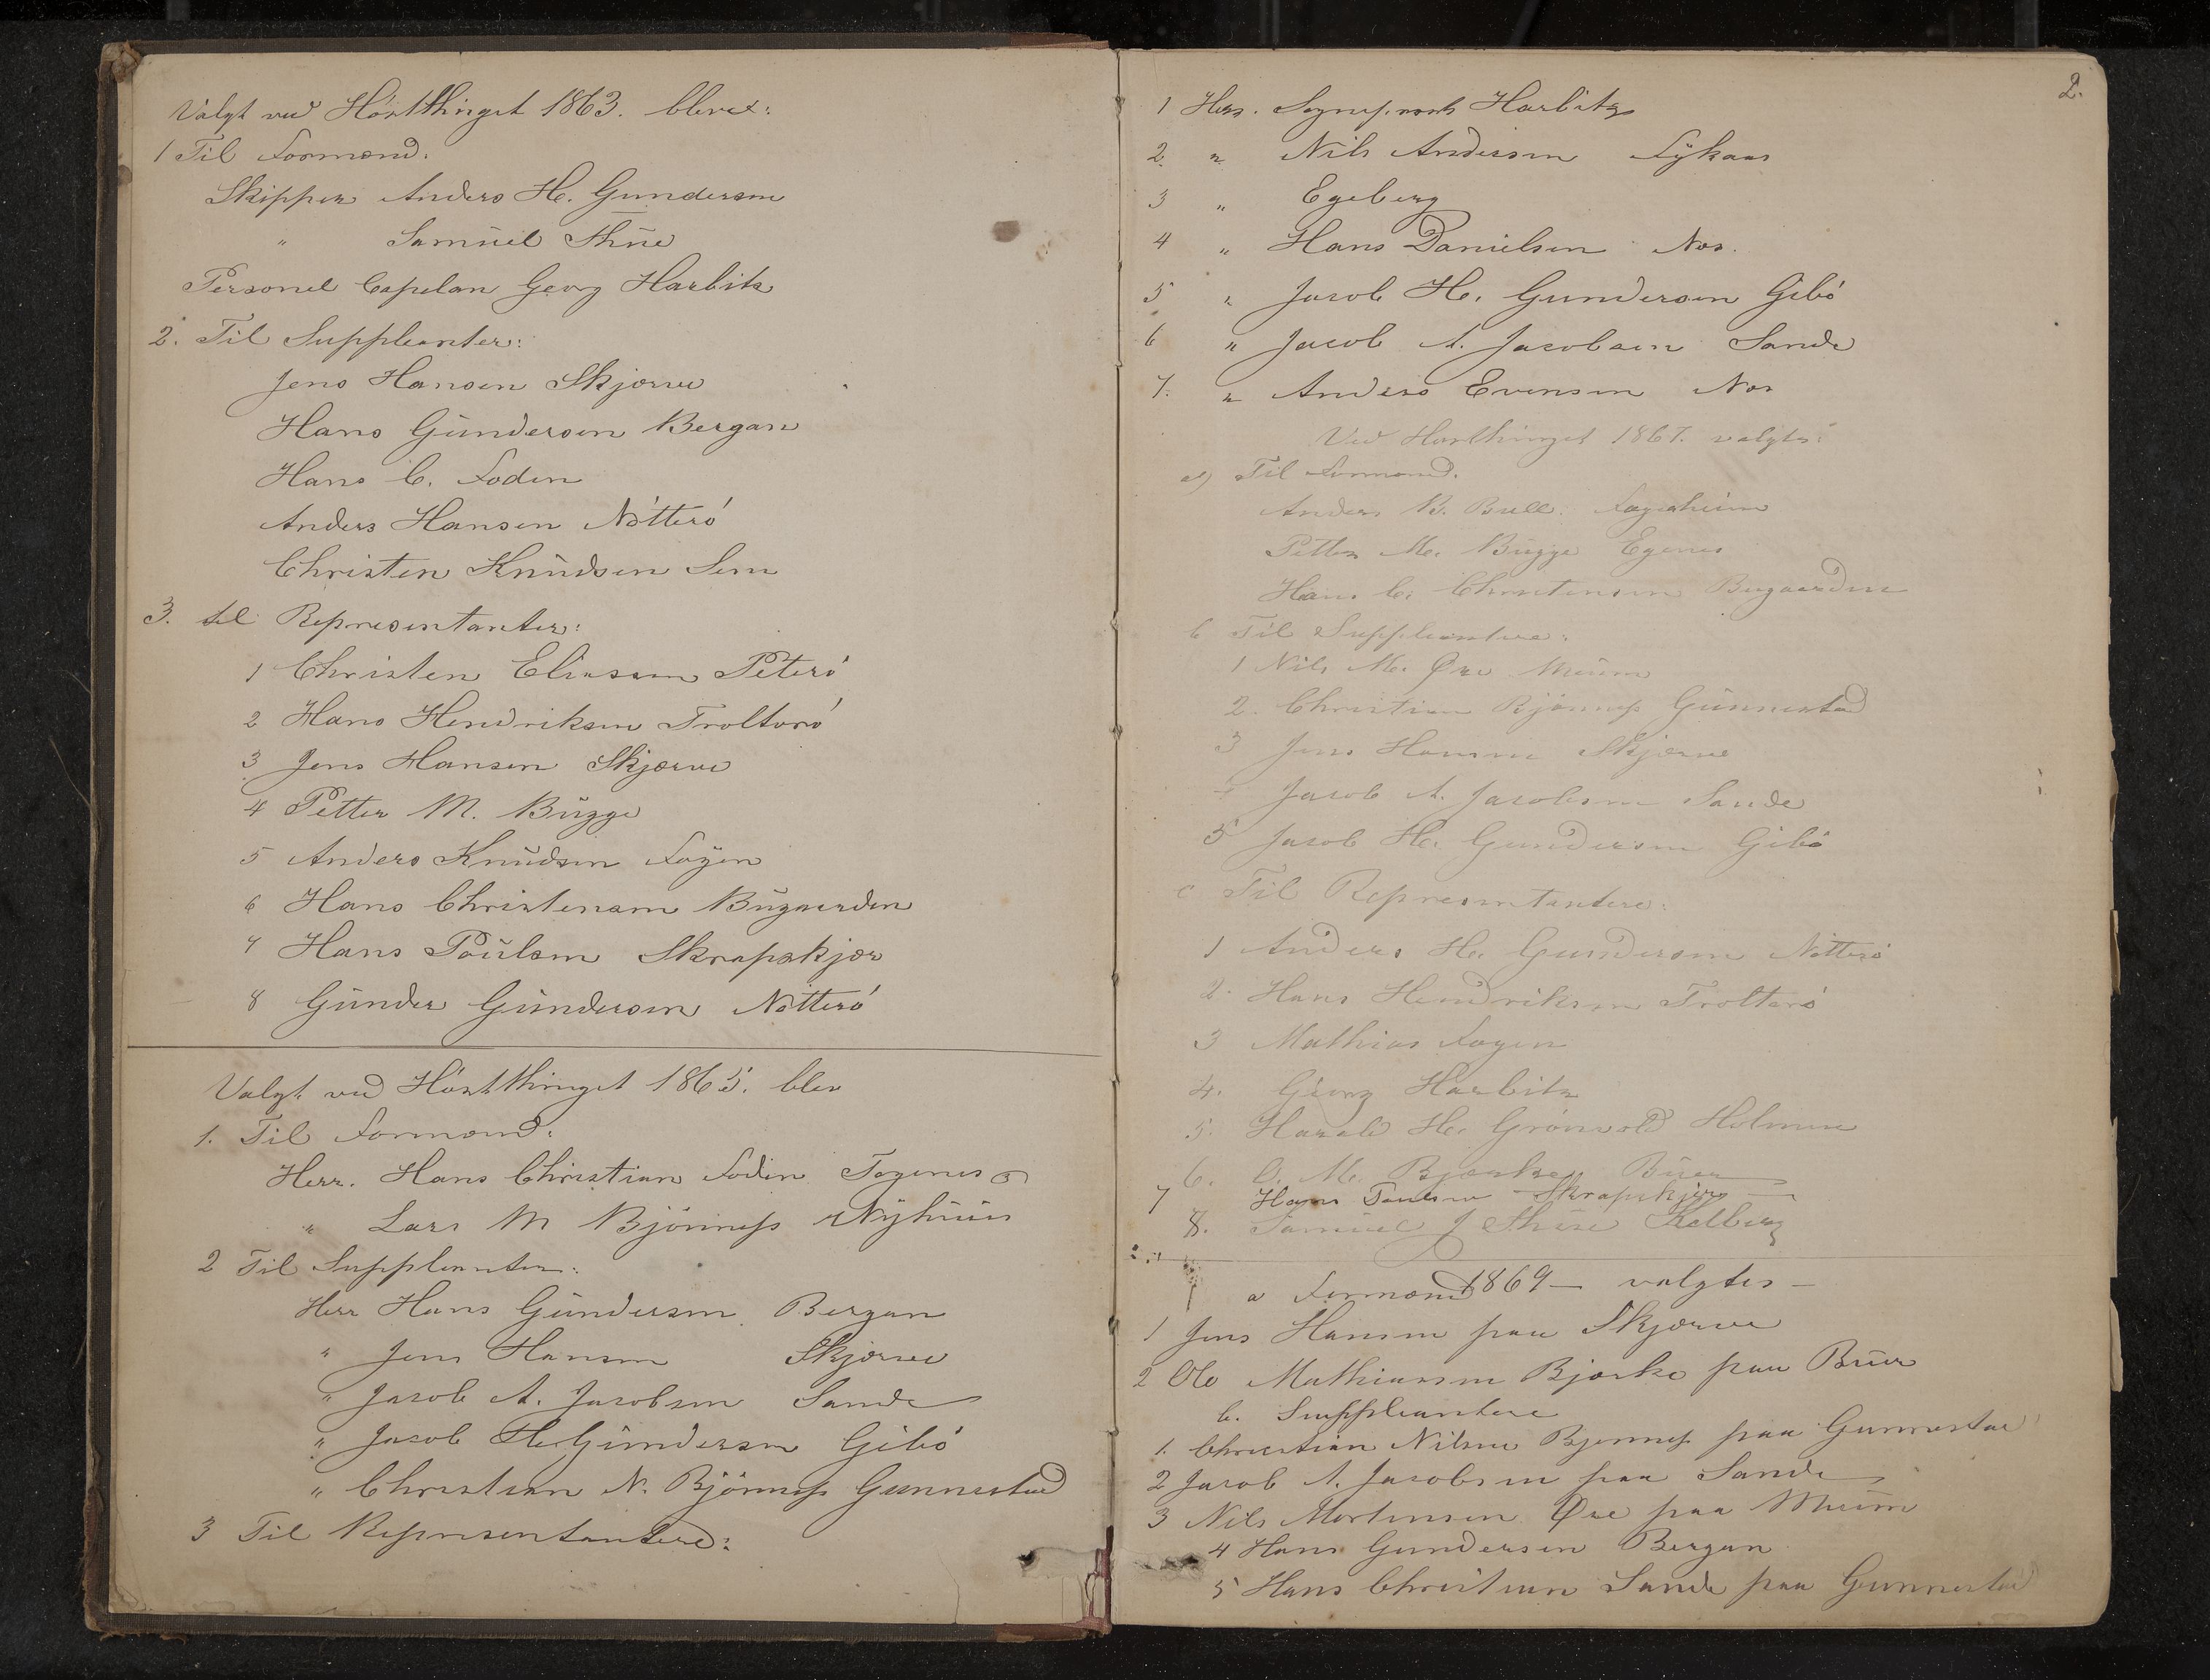 Valgt ved Høstthinget 1863. blevet:
1 Til Formænd.
Skipper Anders H. Gundersen
" Samuel Thue
Personel Capelan Georg Harbitz
2. Til Suppleanter:
Jens Hansen Skjærve
Hans Gundersen Bergan
Hans C. Foden
Anders Hansen Nötterö
Christen Knudsen Sem
3. til Representanter:
1 Christen Eliassen Peterö
2 Hans Hendriksen Trolterö
3 Jens Hansen Skjærve
4 Petter M. Bugge
5 Anders Knudsen Føyen
6 Hans Christensen Bugaarden
7 Hans Poulsen Skrapskjær
8 Gunder Gundersen Nötterö
Valgt ved Høstthinget 1865. blev
1. Til Formænd:
Herr. Hans Christian Foden Togenes og
" Lars M Bjönness Nyhuus
2 Til Suppleanter:
Herr Hans Gundersen Bergan
" Jens Hansen Skjærve
" Jacob A. Jacobsen Sande
" Jacob H. Gundersen Gibö
" Christian N. Bjönness Gunnestad
3 Til Representantere:
2.
1 Herr. Sognepræst Harbitz
2. " Nils Andersen Lykaas
3 " Egeberg
4 " Hans Danielsen Nes.
5 " Jacob H. Gundersen Gibö
6 " Jacob A. Jacobsen Sande
7. " Anders Evensen Nes
Ved Høstthinget 1867. valgtes:
a) Til Formænd.
Anders B. Bull. Fagerheim
Petter M. Bugge Egenes
Hans C. Christensen Bugaarden
b Til Suppleantere:
1 Nils M. Øre Meum
2. Christian Bjönness Gunnestad
3 Jens Hansen Skjærve
4 Jacob A. Jacobsen Sande
5 Jacob H. Gundersen Gibö
c Til Representantere:
1 Anders H. Gundersen Nötterö
2. Hans Hendriksen Trolterö
3 Mathias Føyen
4. Georg Harbitz
5. Harald H. Grönvold Holmen
6. O. M. Bjerke Buer
7 Hans Poulsen Skrapskjær
8. Samuel J Thue Kolberg
a Formænd 1869 — valgtes —
1 Jens Hansen paa Skjærve
2 Ole Mathiassen Bjærke paa Buer
b. Suppleantere
1. Christian Nilsen Bjennes paa Gunnestad
2 Jacob A. Jacobsen paa Sande
3 Nils Mortensen Øre paa Meum
4 Hans Gundersen Bergan
5 Hans Christian Sande paa Gunnestad